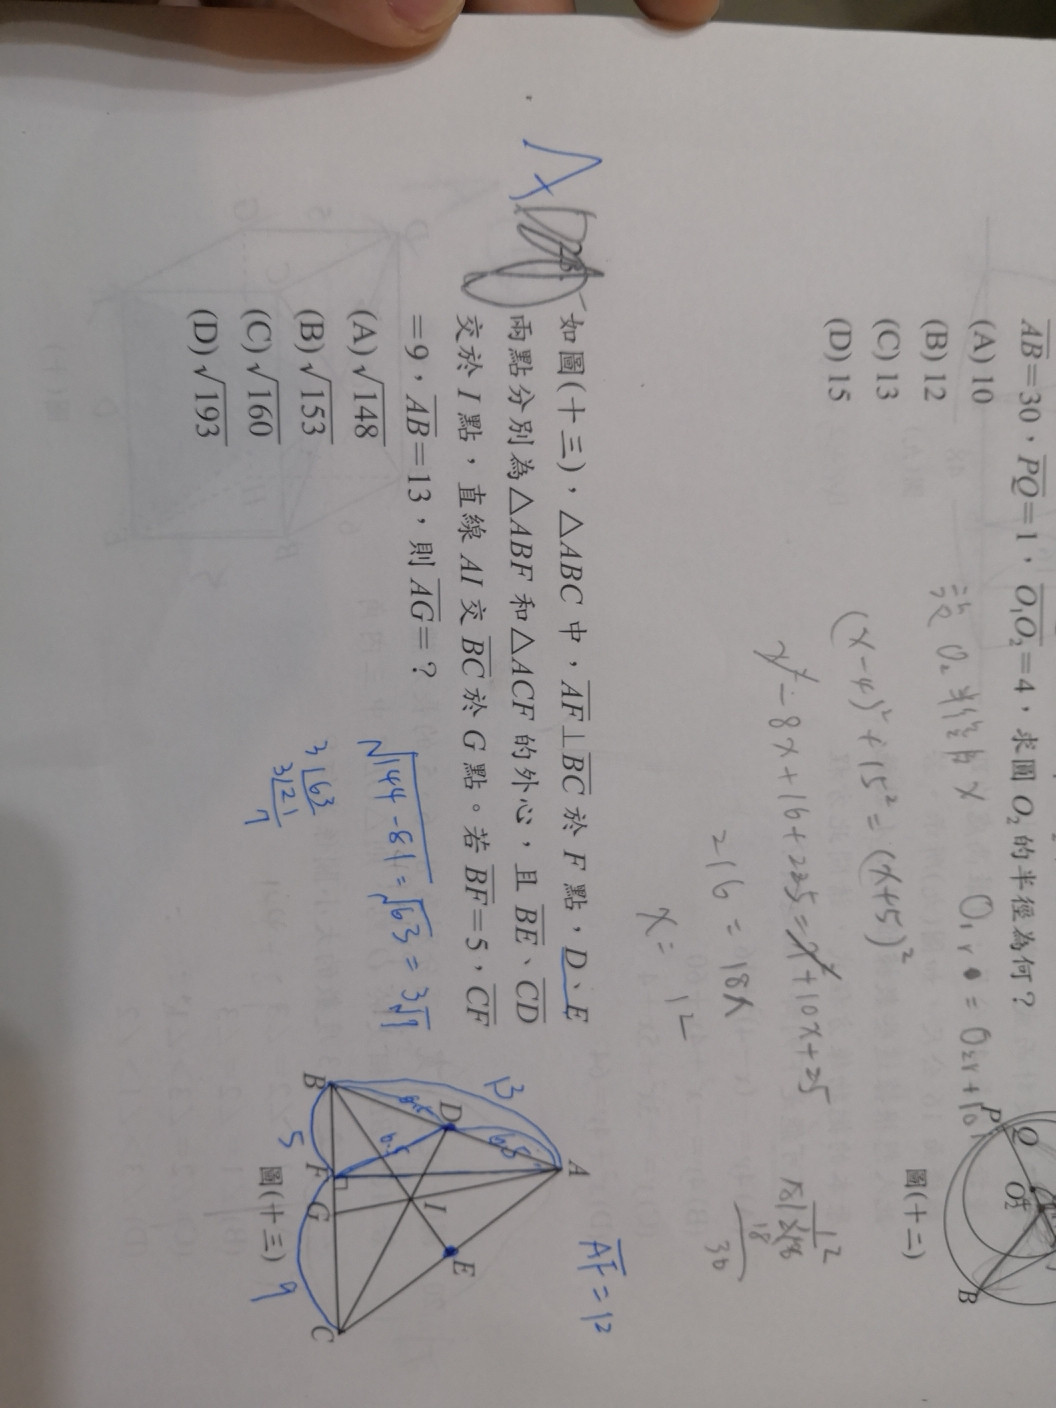 AB=30，PQ=1，O₁O₂=4，求圓 O₂ 的半徑為何？
(A) 10
(B) 12
(C) 13
(D) 15
設 O₂ 半徑為 x
(x-4)²+15²=(x+5)²
x²-8x+16+225=x²+10x+25
216=18x
x=12
P
Q
O₂
B
圖(十二)
如圖(十三)，△ABC 中，AF⊥BC 於 F 點，D、E
兩點分別為△ABF 和△ACF 的外心，且 BE、CD
交於 I 點，直線 AI 交 BC 於 G 點。若 BF=5，CF
=9，AB=13，則 AG=？
(A) √148
(B) √153
(C) √160
(D) √193
√144-81=√63=3√7
3 63
3 21
7
AF=12
A
13
D
6.5
6.5
E
I
B
F
G
C
5
9
圖(十三)